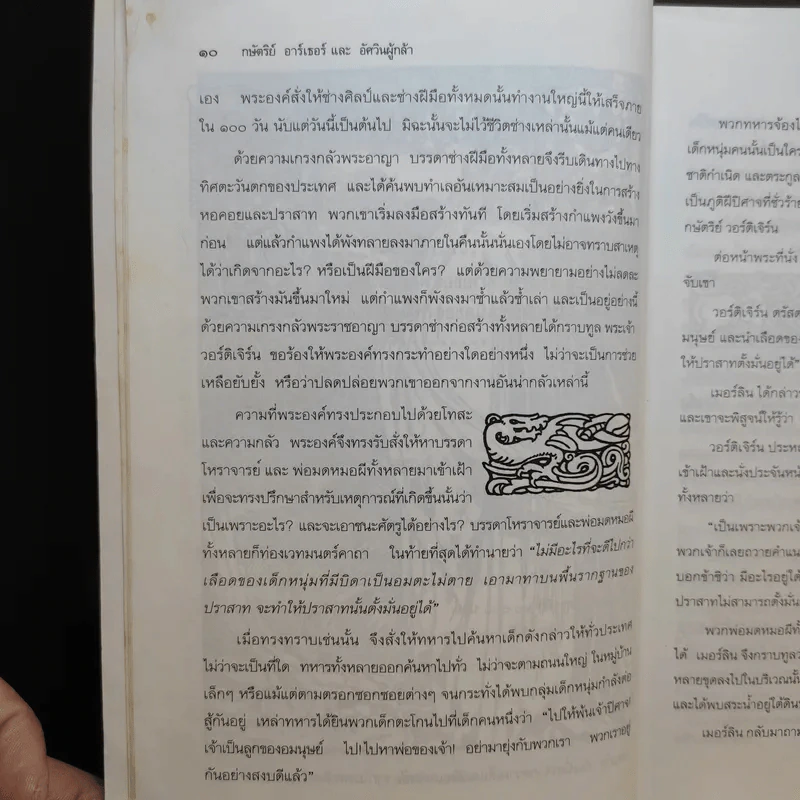 ๑๐ กษัตริย์ อาร์เธอร์ และ อัศวินผู้กล้า
เอง พระองค์สั่งให้ช่างศิลป์และช่างฝีมือทั้งหมดนั้นทำงานใหญ่นี้ให้เสร็จภาย
ใน ๑๐๐ วัน นับแต่วันนี้เป็นต้นไป มิฉะนั้นจะไม่ไว้ชีวิตช่างเหล่านั้นแม้แต่คนเดียว
ด้วยความเกรงกลัวพระอาญา บรรดาช่างฝีมือทั้งหลายจึงรีบเดินทางไปทาง
ทิศตะวันตกของประเทศ และได้ค้นพบทำเลอันเหมาะสมเป็นอย่างยิ่งในการสร้าง
หอคอยและปราสาท พวกเขาเริ่มลงมือสร้างทันที โดยเริ่มสร้างกำแพงวังขึ้นมา
ก่อน แต่แล้วกำแพงได้พังทลายลงมาภายในคืนนั้นนั่นเองโดยไม่อาจทราบสาเหตุ
ได้ว่าเกิดจากอะไร? หรือเป็นฝีมือของใคร? แต่ด้วยความพยายามอย่างไม่ลดละ
พวกเขาสร้างมันขึ้นมาใหม่ แต่กำแพงก็พังลงมาซ้ำแล้วซ้ำเล่า และเป็นอยู่อย่างนี้
ด้วยความเกรงกลัวพระราชอาญา บรรดาช่างก่อสร้างทั้งหลายได้กราบทูล พระเจ้า
วอร์ติเจิร์น ขอร้องให้พระองค์ทรงกระทำอย่างใดอย่างหนึ่ง ไม่ว่าจะเป็นการช่วย
เหลือยับยั้ง หรือว่าปลดปล่อยพวกเขาออกจากงานอันน่ากลัวเหล่านี้
ความที่พระองค์ทรงประกอบไปด้วยโทสะ
และความกลัว พระองค์จึงทรงรับสั่งให้หาบรรดา
โหราจารย์ และ พ่อมดหมอผีทั้งหลายมาเข้าเฝ้า
เพื่อจะทรงปรึกษาสำหรับเหตุการณ์ที่เกิดขึ้นนั้นว่า
เป็นเพราะอะไร? และจะเอาชนะศัตรูได้อย่างไร? บรรดาโหราจารย์และพ่อมดหมอผี
ทั้งหลายก็ท่องเวทมนตร์คาถา ในท้ายที่สุดได้ทำนายว่า “ไม่มีอะไรที่จะดีไปกว่า
เลือดของเด็กหนุ่มที่มีบิดาเป็นอมตะไม่ตาย เอามาทาบนพื้นรากฐานของ
ปราสาท จะทำให้ปราสาทนั้นตั้งมั่นอยู่ได้”
เมื่อทรงทราบเช่นนั้น จึงสั่งให้ทหารไปค้นหาเด็กดังกล่าวให้ทั่วประเทศ
ไม่ว่าจะเป็นที่ใด ทหารทั้งหลายออกค้นหาไปทั่ว ไม่ว่าจะตามถนนใหญ่ ในหมู่บ้าน
เล็กๆ หรือแม้แต่ตามตรอกซอกซอยต่างๆ จนกระทั่งได้พบกลุ่มเด็กหนุ่มกำลังต่อ
สู้กันอยู่ เหล่าทหารได้ยินพวกเด็กตะโกนไปที่เด็กคนหนึ่งว่า “ไปให้พ้นเจ้าปีศาจ!
เจ้าเป็นลูกของอมนุษย์ ไป! ไปหาพ่อของเจ้า! อย่ามายุ่งกับพวกเรา พวกเราอยู่
กันอย่างสงบดีแล้ว”
พวกทหารจ้อง
เด็กหนุ่มคนนั้นเป็นใคร
ชาติกำเนิด และตระกูล
เป็นภูติผีปิศาจที่ชั่วร้าย
กษัตริย์ วอร์ติเจิร์น
ต่อหน้าพระที่นั่ง
จับเขา
วอร์ติเจิร์น ตรัส
มนุษย์ และนำเลือดของ
ให้ปราสาทตั้งมั่นอยู่ได้”
เมอร์ลิน ได้กล่าว
และเขาจะพิสูจน์ให้รู้ว่า
วอร์ติเจิร์น ประ
เข้าเฝ้าและนั่งประจันหน้
ทั้งหลายว่า
“เป็นเพราะพวกเจ้
พวกเจ้าก็เลยถวายคำแน
บอกข้าซิว่า มีอะไรอยู่ใต้
ปราสาทไม่สามารถตั้งมั่น
พวกพ่อมดหมอผีทั้
ได้ เมอร์ลิน จึงกราบทูล
หลายขุดลงไปในบริเวณนั้
และได้พบสระน้ำอยู่ใต้ดิน
เมอร์ลิน กลับมาถาม